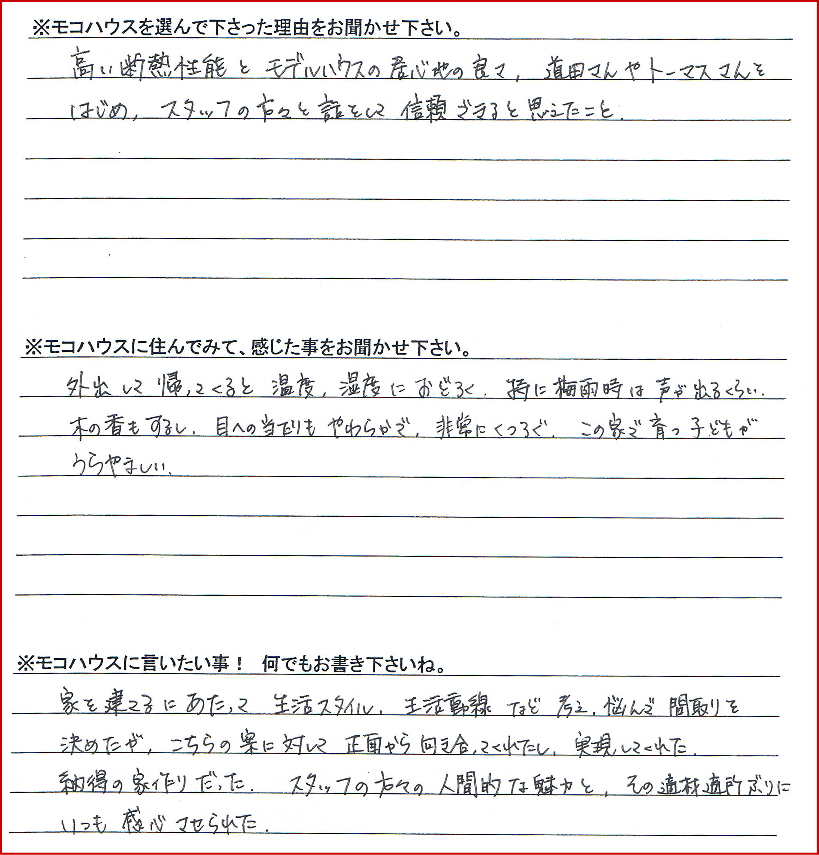 ※モコハウスを選んで下さった理由をお聞かせ下さい。
高い断熱性能とモデルハウスの居心地の良さ、道田さんやトーマスさんを
はじめ、スタッフの方々と話をして信頼できると思えたこと。
※モコハウスに住んでみて、感じた事をお聞かせ下さい。
外出して帰ってくると温度、湿度におどろく。特に梅雨時は声が出るくらい。
木の香もするし、目への当たりもやわらかで、非常にくつろぐ。この家で育つ子どもが
うらやましい。
※モコハウスに言いたい事！ 何でもお書き下さいね。
家を建てるにあたって生活スタイル、生活動線など考え、悩んで間取りを
決めたが、こちらの案に対して正面から向き合ってくれたし、実現してくれた。
納得の家作りだった。スタッフの方々の人間的な魅力と、その適材適所ぶりに
いつも感心させられた。